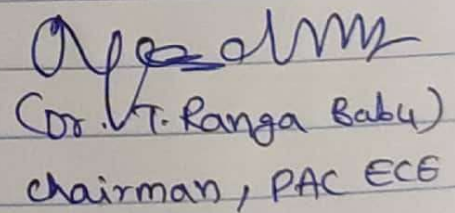 (Dr. T. Ranga Babu)
Chairman, PAC ECE